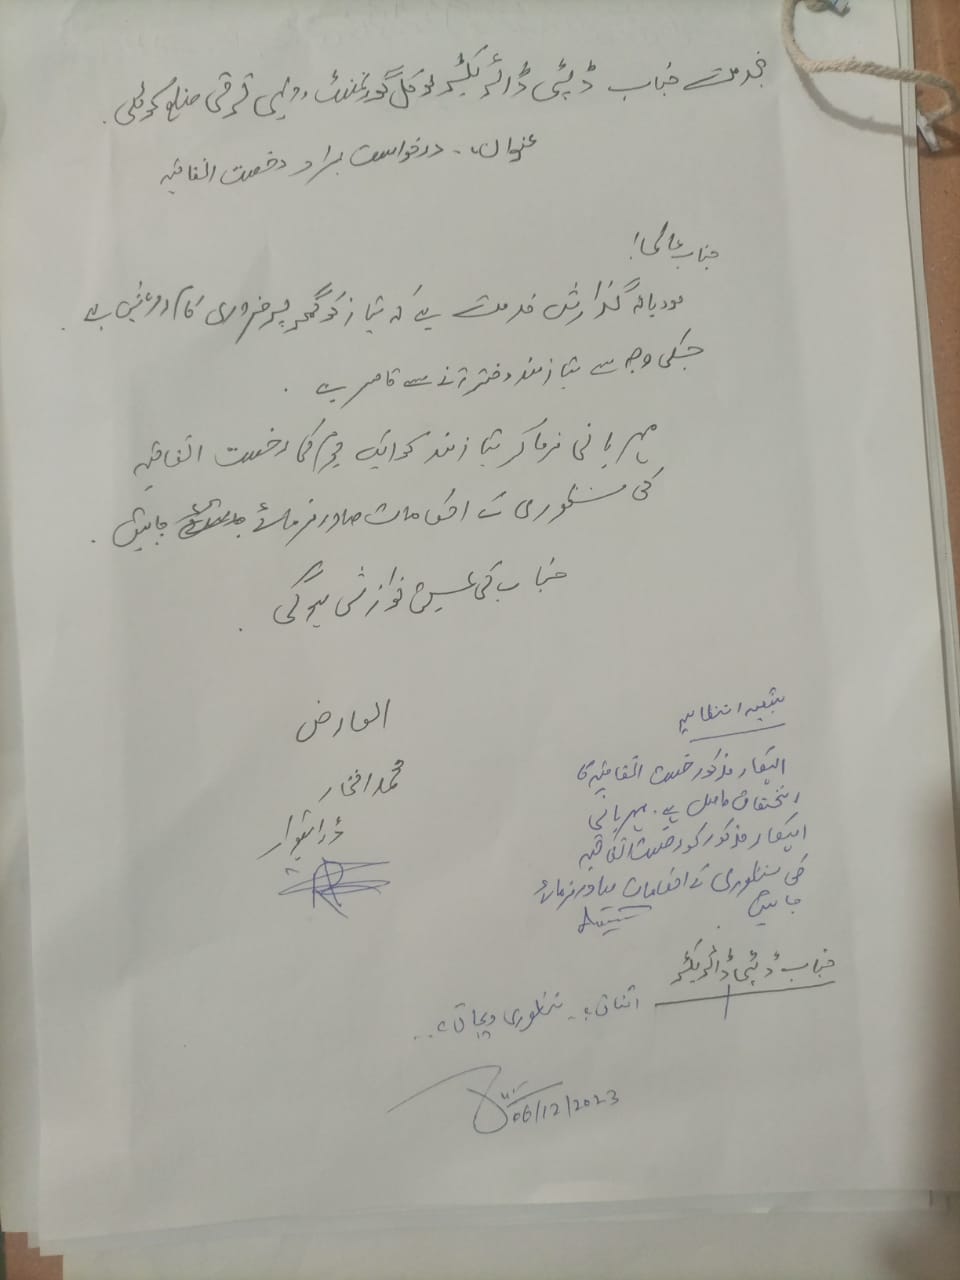 بخدمت جناب ڈپٹی ڈائریکٹر لوکل گورنمنٹ دیہی ترقی ضلع کوٹلی۔
عنوان:۔ درخواست بمراد رخصت اتفاقیہ
جناب عالی!
مودبانہ گذارش خدمت ہے کہ نیاز کو گھر پر ضروری کام درپیش ہے۔
جسکی وجہ سے نیازمند دفتر آنے سے قاصر ہے۔
مہربانی فرما کر نیازمند کو ایک یوم کی رخصت اتفاقیہ
کی منظوری کے احکامات صادر فرمائے جائیں۔
جناب کی عین نوازش ہوگی۔
العارض
محمد افتخار
ڈرائیور
شعبہ انتظامیہ
اہلکار مذکور رخصت اتفاقیہ کا
استحقاق حاصل ہے۔ مہربانی
اہلکار مذکور کو رخصت اتفاقیہ
کی منظوری کے احکامات صادر فرمائے
جائیں۔
جناب ڈپٹی ڈائریکٹر
اتفاق ہے۔ منظوری دیجاتی ہے۔
06/12/2023